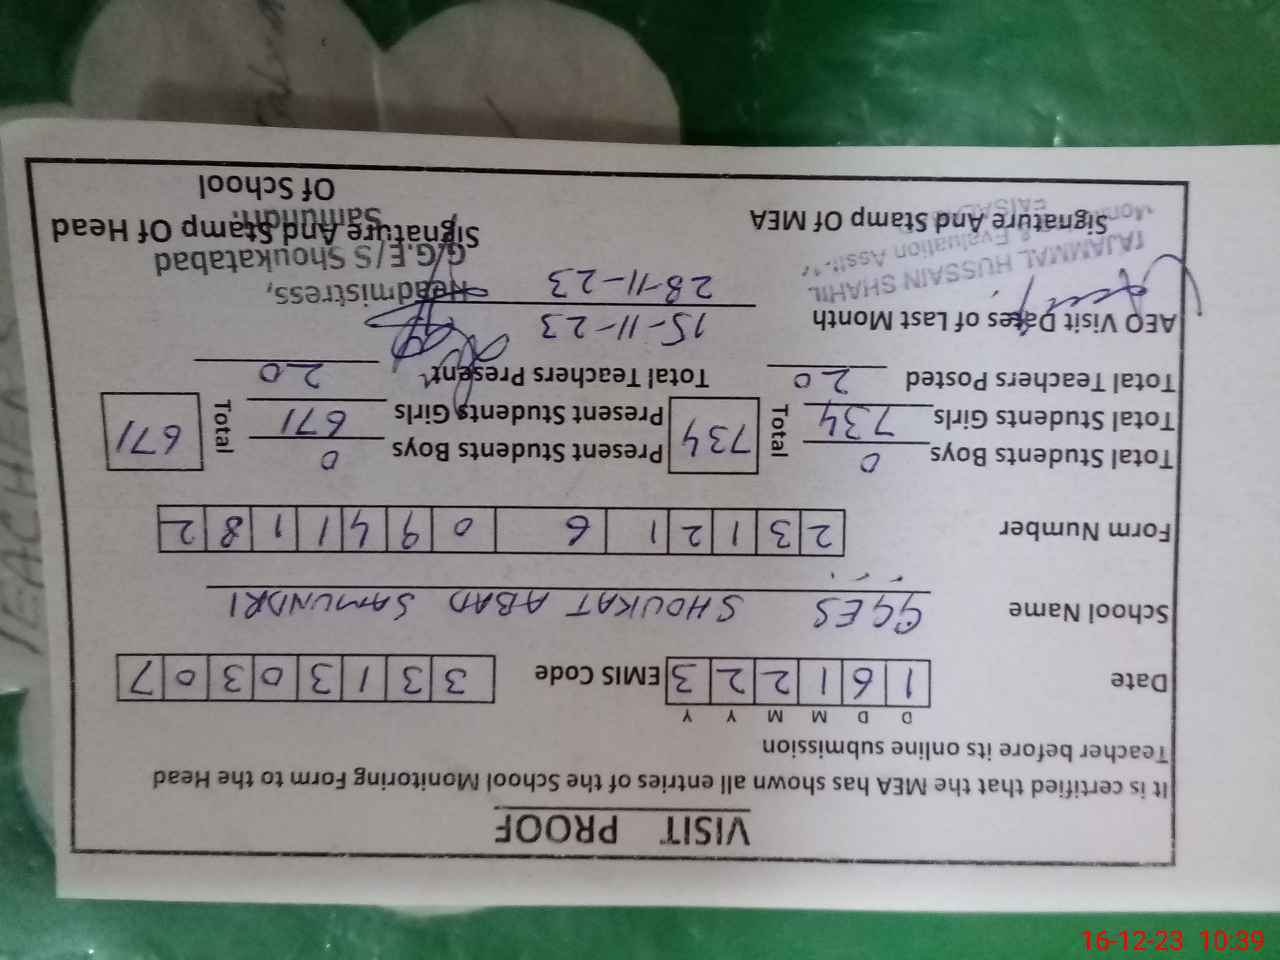 VISIT PROOF
It is certified that the MEA has shown all entries of the School Monitoring Form to the Head
Teacher before its online submission
D D M M Y Y
Date 1 6 1 2 2 3 EMIS Code 3 3 1 3 0 3 0 7
School Name GGES SHOUKAT ABAD SAMUNDRI
Form Number 2 3 1 2 1 6 0 9 4 1 1 8 2
Total Students Boys 0 Total 734 Present Students Boys 0 Total 671
Total Students Girls 734 Present Students Girls 671
Total Teachers Posted 20 Total Teachers Present 20
AEO Visit Dates of Last Month 15-11-23
28-11-23
Headmistress,
G.G.E/S Shoukatabad
Samundri.
TAJAMMAL HUSSAIN SHAHIL
& Evaluation Asstt.
Signature And Stamp Of MEA
Signature And Stamp Of Head
Of School
TEACHERS
16-12-23 10:39